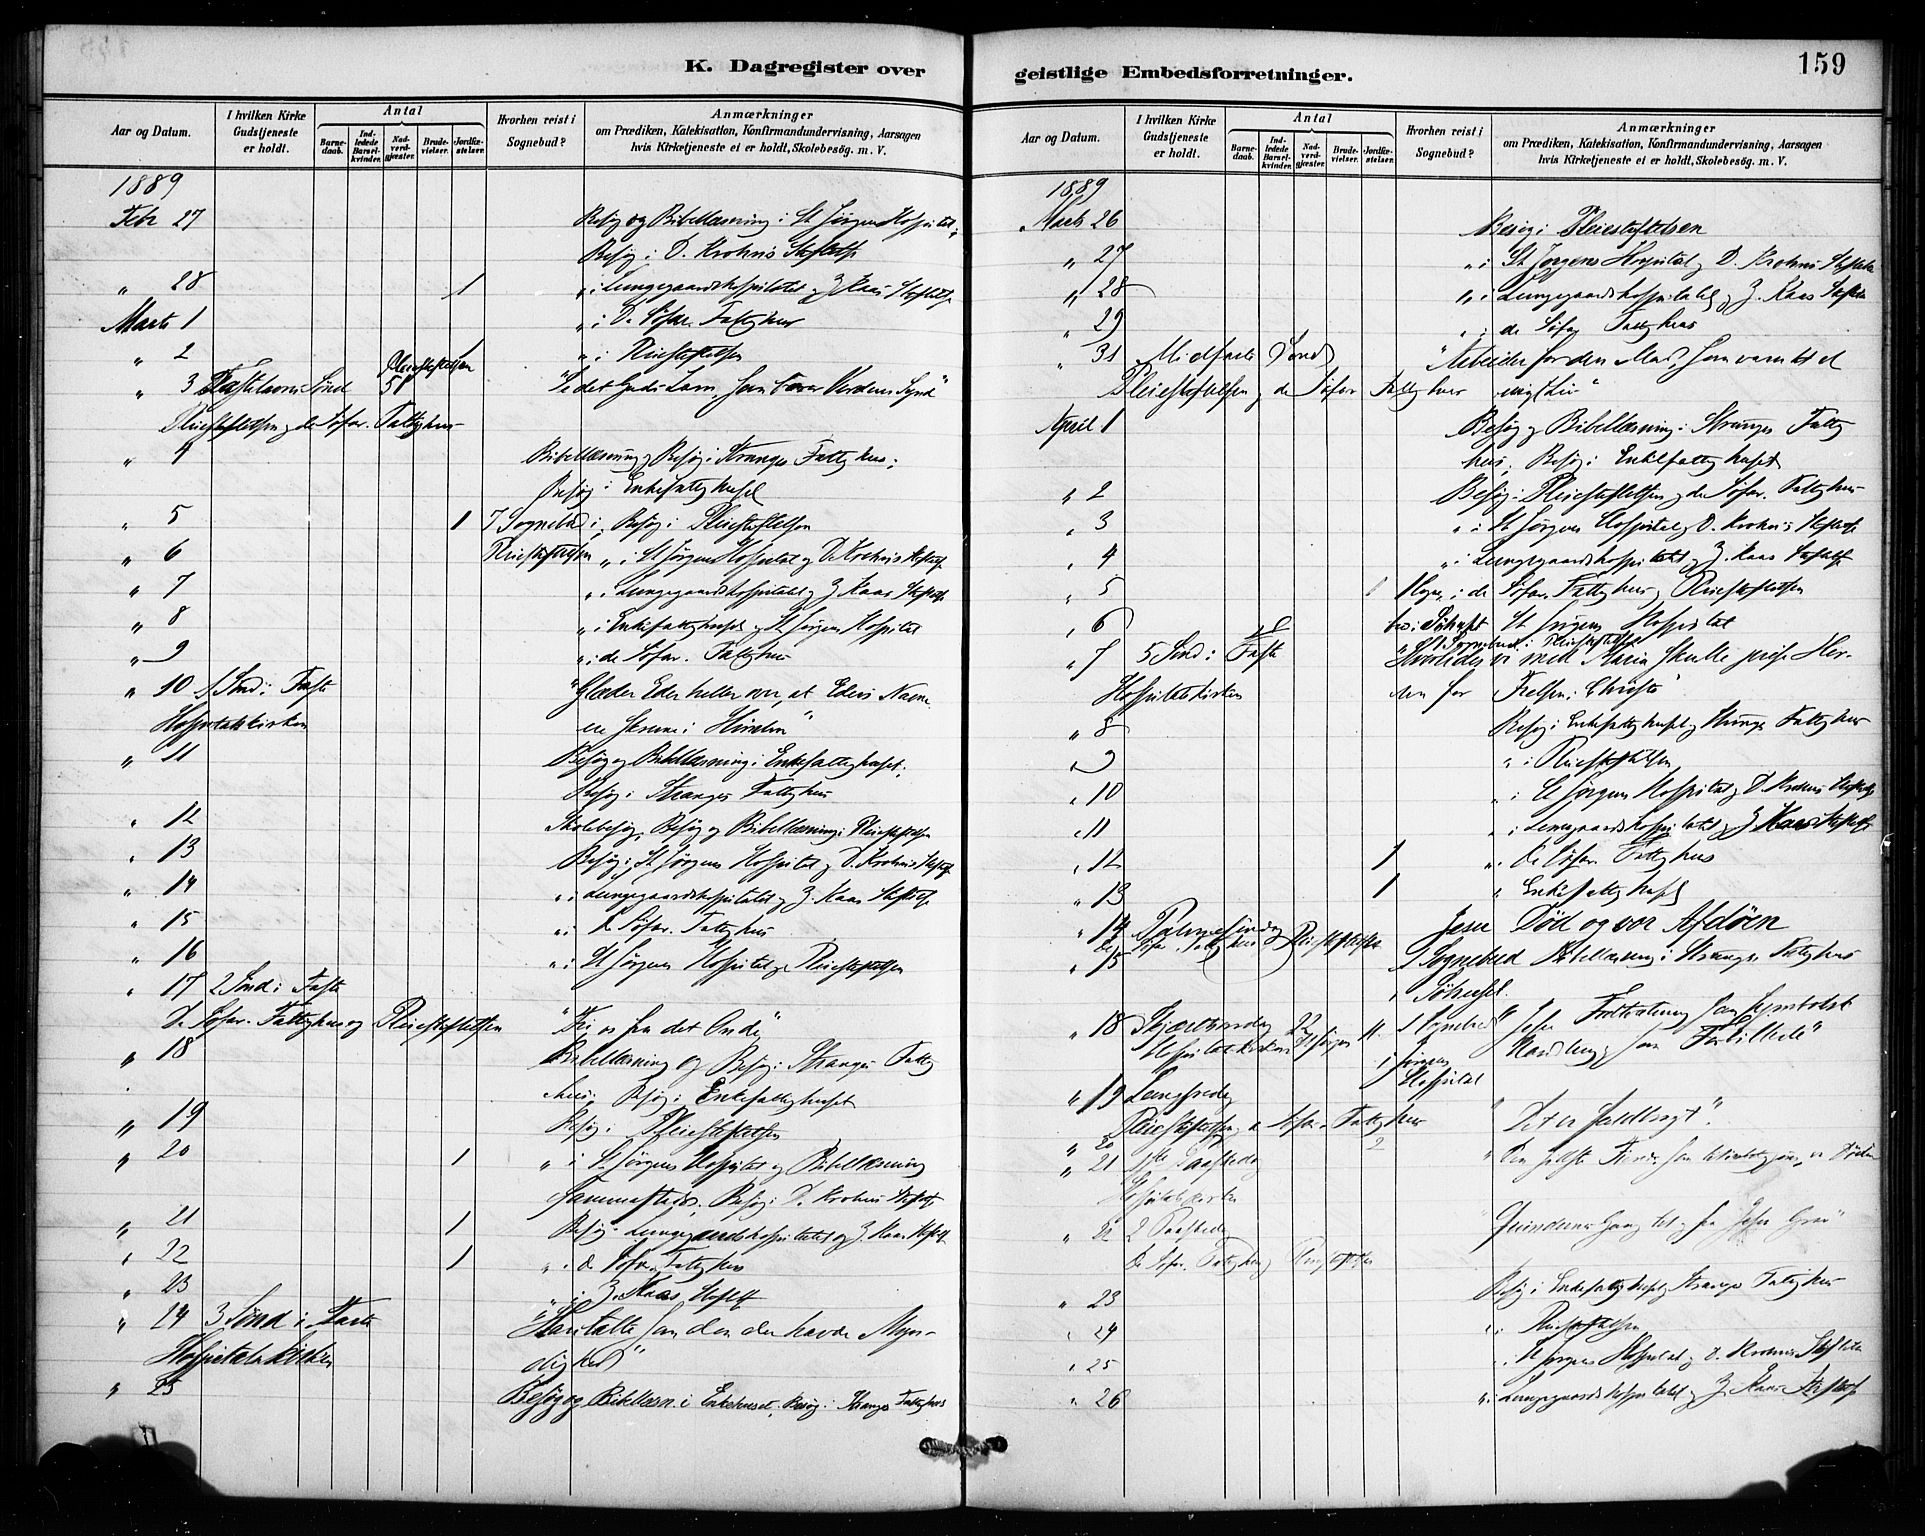 K. Dagregister over
Aar og Datum.
I hvilken Kirke Gudstjeneste er holdt.
Antal
Barnedaab.
Indledede Barselkvinder.
Nadverdgjæster.
Brudevielser.
Jordfæstelser.
Hvorhen reist i Sognebud?
Anmærkninger
om Prædiken, Katekisation, Konfirmandundervisning, Aarsagen
hvis Kirketjeneste ei er holdt, Skolebesøg. m. V.
1889
Febr 27 Besøg og Bibellæsning i St Jørgens Hospital;
Besøg i D. Krohns Stiftelse
" 28 1 " i Lungegaardshospitalet og Z. Kaas Stiftelse
Marts 1 " i De Søfar. Fattighus
" 2 " i Pleiestiftelsen
" 3 Fastelavns Sønd Pleiestiftelsen 5 "Se det Guds Lam, som bærer Verdens Synd"
Pleiestiftelsen og de Søfar. Fattighus
" 4 Bibellæsning og Besøg i Stranges Fattighus;
Besøg i Enkefattighuset
" 5 1 7 Sognebud i Besøg i Pleiestiftelsen
" 6 Pleiestiftelsen " i St Jørgens Hospital og D. Krohns Stiftelse
" 7 " i Lungegaardshospitalet og Z. Kaas Stiftelse
" 8 " i Enkefattighuset og St Jørgens Hospital
" 9 " i de Søfar. Fattighus
" 10 1 Sønd i Faste "Glæder Eder heller over, at Eders Navne
Hospitalskirken ere skrevne i Himlen"
" 11 Besøg og Bibellæsning i Enkefattighuset;
Besøg i Stranges Fattighus
" 12 Skolebesøg, Besøg og Bibellæsning i Pleiestiftelsen
" 13 Besøg i St Jørgens Hospital og D. Krohns Stiftelse
" 14 " i Lungegaardshospitalet og Z. Kaas Stiftelse
" 15 " i de Søfar. Fattighus
" 16 " i St Jørgens Hospital og Pleiestiftelsen
" 17 2 Sønd i Faste
De Søfar. Fattighus og Pleiestiftelsen "Fri os fra det Onde"
" 18 Bibellæsning og Besøg i Stranges Fattig
hus; Besøg i Enkefattighuset
" 19 Besøg i Pleiestiftelsen
" 20 1 " i St Jørgens Hospital og Bibellæsning
sammesteds. Besøg i D. Krohns Stiftelse
" 21 1 Besøg i Lungegaardshospitalet og Z. Kaas Stiftelse
" 22 1 " i de Søfar. Fattighus
" 23 " i Z. Kaas Stiftelse
" 24 3 Sønd i Faste "Han talte som den der havde Myn-
Hospitalskirken dighed"
" 25 Besøg og Bibellæsn. i Enkehuset, Besøg i Stranges Fattighus
159
geistlige Embedsforretninger.
Aar og Datum.
I hvilken Kirke Gudstjeneste er holdt.
Antal
Barnedaab.
Indledede Barselkvinder.
Nadverdgjæster.
Brudevielser.
Jordfæstelser.
Hvorhen reist i Sognebud?
Anmærkninger
om Prædiken, Katekisation, Konfirmandundervisning, Aarsagen
hvis Kirketjeneste ei er holdt, Skolebesøg. m. V.
1889
Marts 26 Besøg i Pleiestiftelsen
" 27 " i St Jørgens Hospital og D. Krohns Stiftelse
" 28 " i Lungegaardshospitalet og Z. Kaas Stiftelse
" 29 " i de Søfar Fattighus
" 31 Midfaste Sønd "Arbeider for den Mad, som varer til et
Pleiestiftelsen og de Søfar Fattighus evigt Liv"
April 1 Besøg og Bibellæsning i Stranges Fattig
hus, Besøg i Enkefattighuset
" 2 Besøg i Pleiestiftelsen og de Søfar. Fattighus
" 3 " i St Jørgens Hospital og D. Krohns Stiftelse
" 4 " i Lungegaardshospitalet og Z. Kaas Stiftelse
" 5 i de Søfar. Fattighus og Pleiestiftelsen
" 6 St Jørgens Hospital
Sognebud i Pleiestiftelsen
" 7 5 Sønd i Faste Hvorledes vi med Maria skulle prise Her-
Hospitalskirken ren for Frelsen i Christo"
" 8 Besøg i Enkefattighuset og Stranges Fattighus
" 9 " i Pleiestiftelsen
" 10 " i St Jørgens Hospital og D. Krohns Stiftelse
" 11 " i Lungegaardshospitalet og Z Kaas Stiftelse
" 12 1 " i de Søfar. Fattighus
" 13 1 " Enkefattighuset
" 14 Palmesøndag Jesu Død og vor Afdøen
de Søfar. Fattighus og Pleiestiftelsen
" 15 Sognebud Bibellæsning i Stranges Fattighus
" 18 Skjærthorsdag 22 Sognebud "Jesu Fodtvætning som symbolsk
Hospitalskirken St. Jørgens H. i Jørgens Hospital Handling og som Forbillede"
" 19 Langfredag
Pleiestiftelsen og de Søfar. Fattighus "Det er fuldbragt".
" 20 2
" 21 1ste Paaskedag "Den sidste Fiende, som tilintetgjøres, er Døden
Hospitalskirken
" 22 2 Paaskedag Qvindernes Gang til og fra Jesu Grav"
De Søfar. Fattighus og Pleiestiftelsen
" 23 Besøg i Enkefattighuset og Stranges Fattighus
" 24 " i Pleiestiftelsen
" 25 " i St Jørgens Hospital og D. Krohns Stiftelse
" 26 " i Lungegaardshospitalet og Z. Kaas Stiftelse